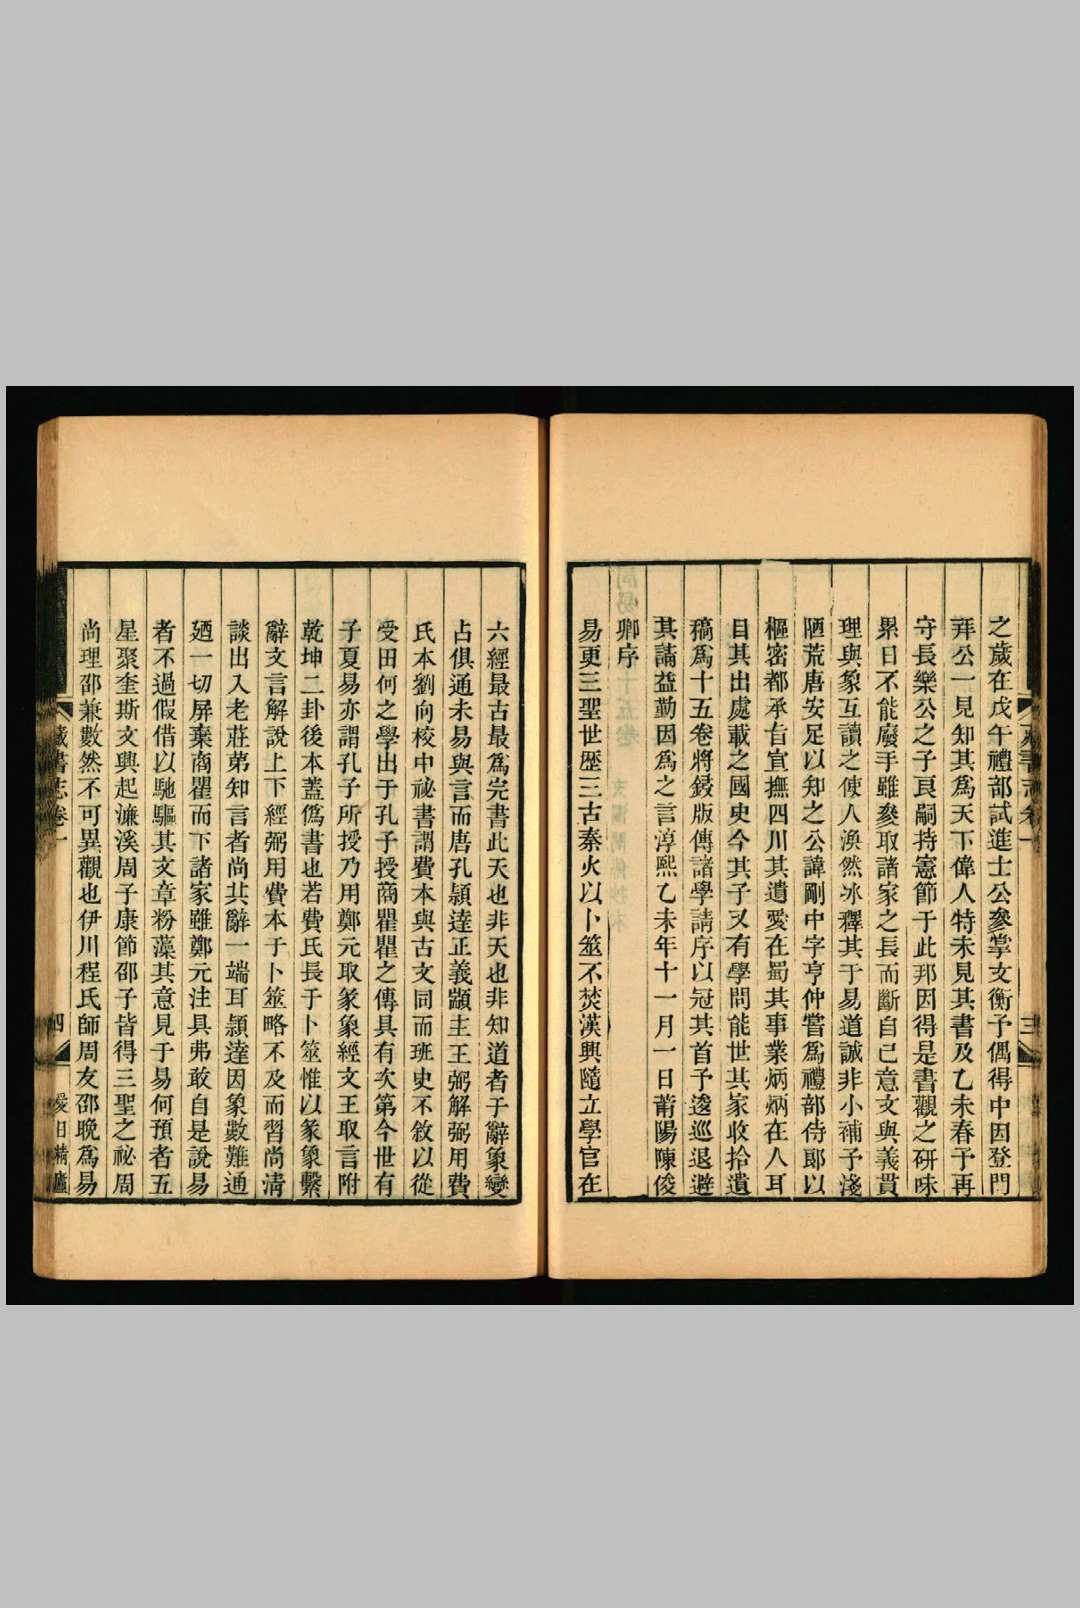 之歲在戊午禮部試進士公參掌文衡予偶得中因登門
拜公一見知其爲天下偉人特未見其書及乙未春予再
守長樂公之子良嗣持憲節于此邦因得是書觀之研味
累日不能廢手雖參取諸家之長而斷自己意文與義貫
理與象互讀之使人渙然冰釋其于易道誠非小補予淺
陋荒唐安足以知之公諱剛中字亨仲嘗爲禮部侍郎以
樞密都承旨宣撫四川其遺愛在蜀其事業炳炳在人耳
目其出處載之國史今其子又有學問能世其家收拾遺
稿爲十五卷將鋟版傳諸學請序以冠其首予逡巡退避
其請益勤因爲之言淳熙乙未年十一月一日莆陽陳俊
卿序
易更三聖世歷三古秦火以卜筮不焚漢興隨立學官在
六經最古最爲完書此天也非天也非知道者于辭象變
占俱通未易與言而唐孔穎達正義顓主王弼解弼用費
氏本劉向校中祕書謂費本與古文同而班史不敘以從
受田何之學出于孔子授商瞿瞿之傳具有次第今世有
子夏易亦謂孔子所授乃用鄭元取彖象經文王取言附
乾坤二卦後本蓋僞書也若費氏長于卜筮惟以彖象繫
辭文言解說上下經弼用費本于卜筮略不及而習尚清
談出入老莊弟知言者尚其辭一端耳穎達因象數難通
廼一切屏棄商瞿而下諸家雖鄭元注具弗敢自是說易
者不過假借以馳驅其文章粉藻其意見于易何預者五
星聚奎斯文興起濂溪周子康節邵子皆得三聖之祕周
尚理邵兼數然不可異觀也伊川程氏師周友邵晚爲易
藏書志卷一
四
愛日精廬